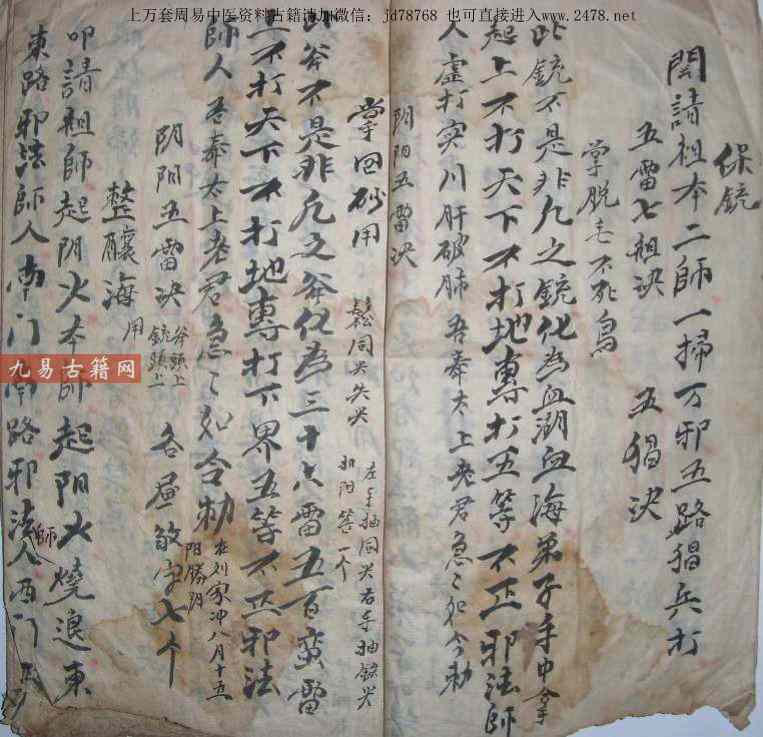 上万套周易中医资料古籍请加微信：jd78768 也可直接进入www.2478.net
保銃
開請祖本二師一掃万邪五路猖兵打
五雷七祖決 五猖決
掌脱毛不死鳥
此銃不是非凡之銃化為血湖血海弟子手中拿
起上不打天下不打地專打五等不正邪法師
人虚打实川肝破肺吾奉太上老君急〻如令勅
阴阳五雷决
掌回砂用
左手抽同尖右手抽鉄尖
斧不是非凡之斧化為三十六雷五百蛮雷
上不打天下不打地專打下界五等不正邪法
師人吾奉太上老君急〻如令勅
在刘家冲八月十五
阴阳五雷决
斧頭上
銃頭上
各屋敬字七个
整醮海用
叩請祖師起阴火本師起阳火燒退東
東路邪法師人南门南路邪法師人西门西
九易古籍网